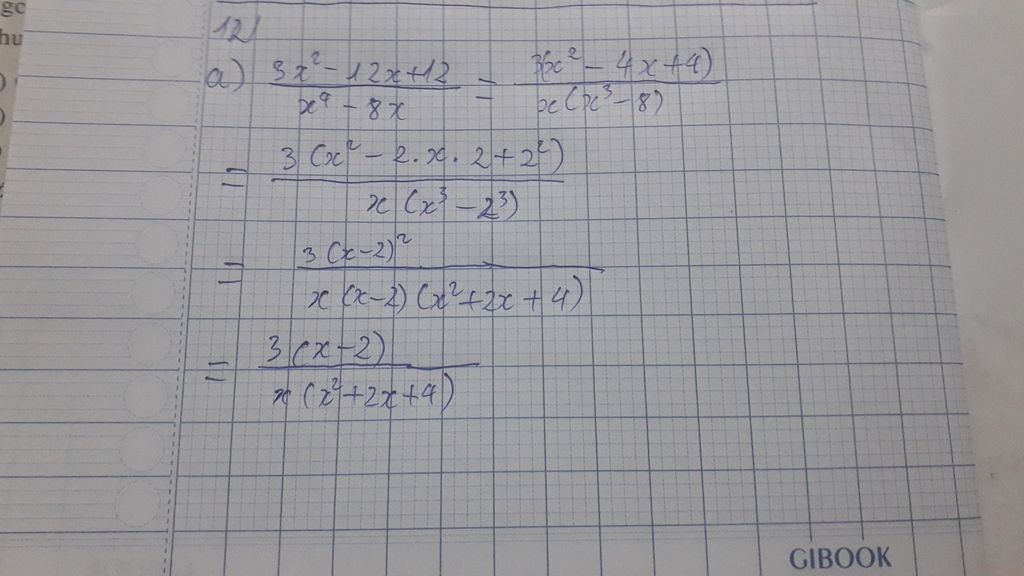 go
hu
12/
a) \frac{3x^2 - 12x + 12}{x^4 - 8x} = \frac{3(x^2 - 4x + 4)}{x(x^3 - 8)}
= \frac{3(x^2 - 2.x.2 + 2^2)}{x(x^3 - 2^3)}
= \frac{3(x-2)^2}{x(x-2)(x^2 + 2x + 4)}
= \frac{3(x-2)}{x(x^2 + 2x + 4)}
GIBOOK